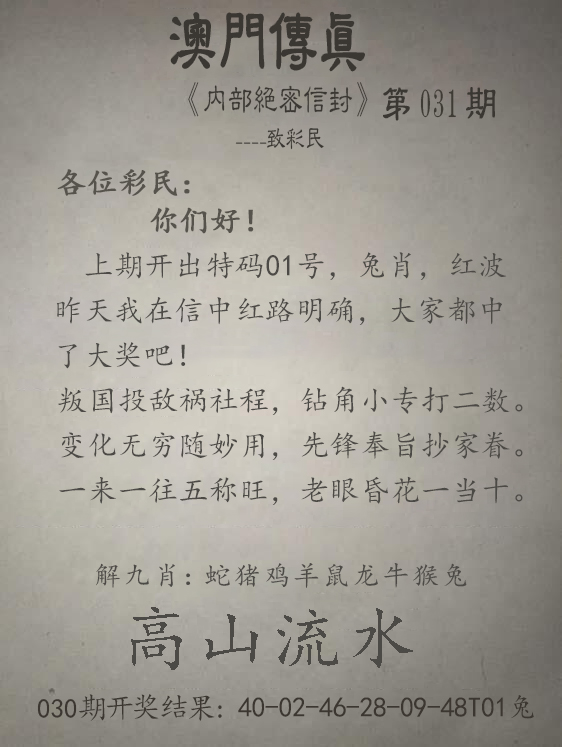 澳門傳眞
《内部絕密信封》第031期
----致彩民
各位彩民：
你们好！
上期开出特码01号，兔肖，红波
昨天我在信中红路明确，大家都中
了大奖吧！
叛国投敌祸社程，钻角小专打二数。
变化无穷随妙用，先锋奉旨抄家眷。
一来一往五称旺，老眼昏花一当十。
解九肖：蛇猪鸡羊鼠龙牛猴兔
高山流水
030期开奖结果：40-02-46-28-09-48T01兔